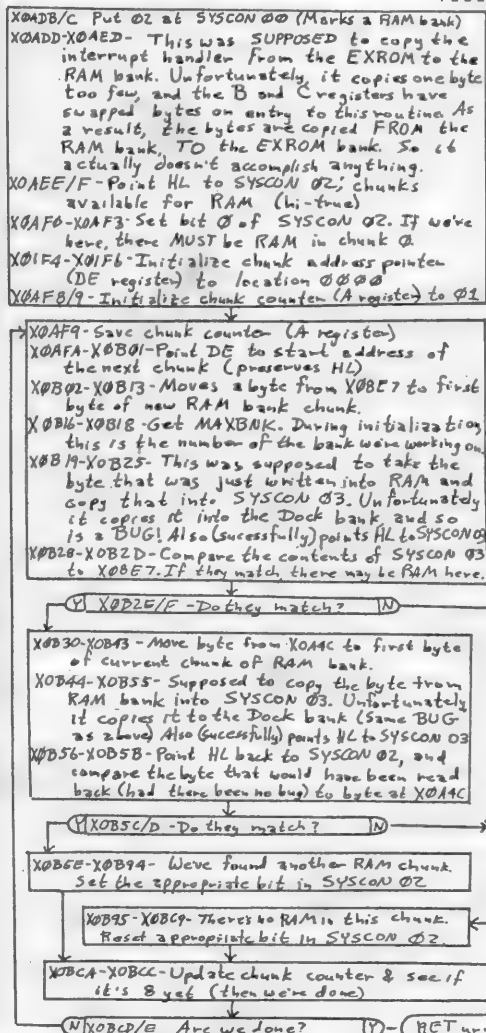 XØADB/C Put Ø2 at SYSCON ØØ (Marks a RAM bank)
XØADD-XØAED- This was SUPPOSED to copy the
interrupt handler from the EXROM to the
RAM bank. Unfortunately, it copies one byte
too few, and the B and C registers have
swapped bytes on entry to this routine. As
a result, the bytes are copied FROM the
RAM bank, TO the EXROM bank. So it
actually doesn't accomplish anything.
XØAEE/F-Point HL to SYSCON Ø2; chunks
available for RAM (hi-true)
XØAFØ-XØAF3-Set bit Ø of SYSCON Ø2. If we're
here, there MUST be RAM in chunk Ø.
XØ1F4-XØ1F6-Initialize chunk address pointer
(DE register) to location ØØØØ
XØAF8/9-Initialize chunk counter (A register) to Ø1
XØAF9-Save chunk counter (A register)
XØAFA-XØBØ1-Point DE to start address of
the next chunk (preserves HL)
XØBØ2-XØB13-Moves a byte from XØBE7 to first
byte of new RAM bank chunk.
XØB16-XØB18-Get MAXBNK. During initialization
this is the number of the bank we're working on.
XØB19-XØB25-This was supposed to take the
byte that was just written into RAM and
copy that into SYSCON Ø3. Unfortunately
it copies it into the Dock bank and so
is a BUG! Also (sucessfully) points HL to SYSCON Ø3
XØB28-XØB2D-Compare the contents of SYSCON Ø3
to XØBE7. If they match there may be RAM here.
Y XØB2E/F -Do they match? N
XØB30-XØB43-Move byte from XØA4C to first byte
of current chunk of RAM bank.
XØB44-XØB55-Supposed to copy the byte from
RAM bank into SYSCON Ø3. Unfortunately
it copies it to the Dock bank (Same BUG
as above) Also (sucessfully) points HL to SYSCON Ø3
XØB56-XØB5B-Point HL back to SYSCON Ø2, and
compare the byte that would have been read
back (had there been no bug) to byte at XØA4C
Y XØB5C/D -Do they match? N
XØB5E-XØB94- We've found another RAM chunk.
Set the appropriate bit in SYSCON Ø2
XØB95-XØBC9-There's no RAM in this chunk.
Reset appropriate bit in SYSCON Ø2.
XØBCA-XØBCC-Update chunk counter & see if
it's 8 yet (then we're done)
N XØBCD/E Are we done? Y -(RETurn